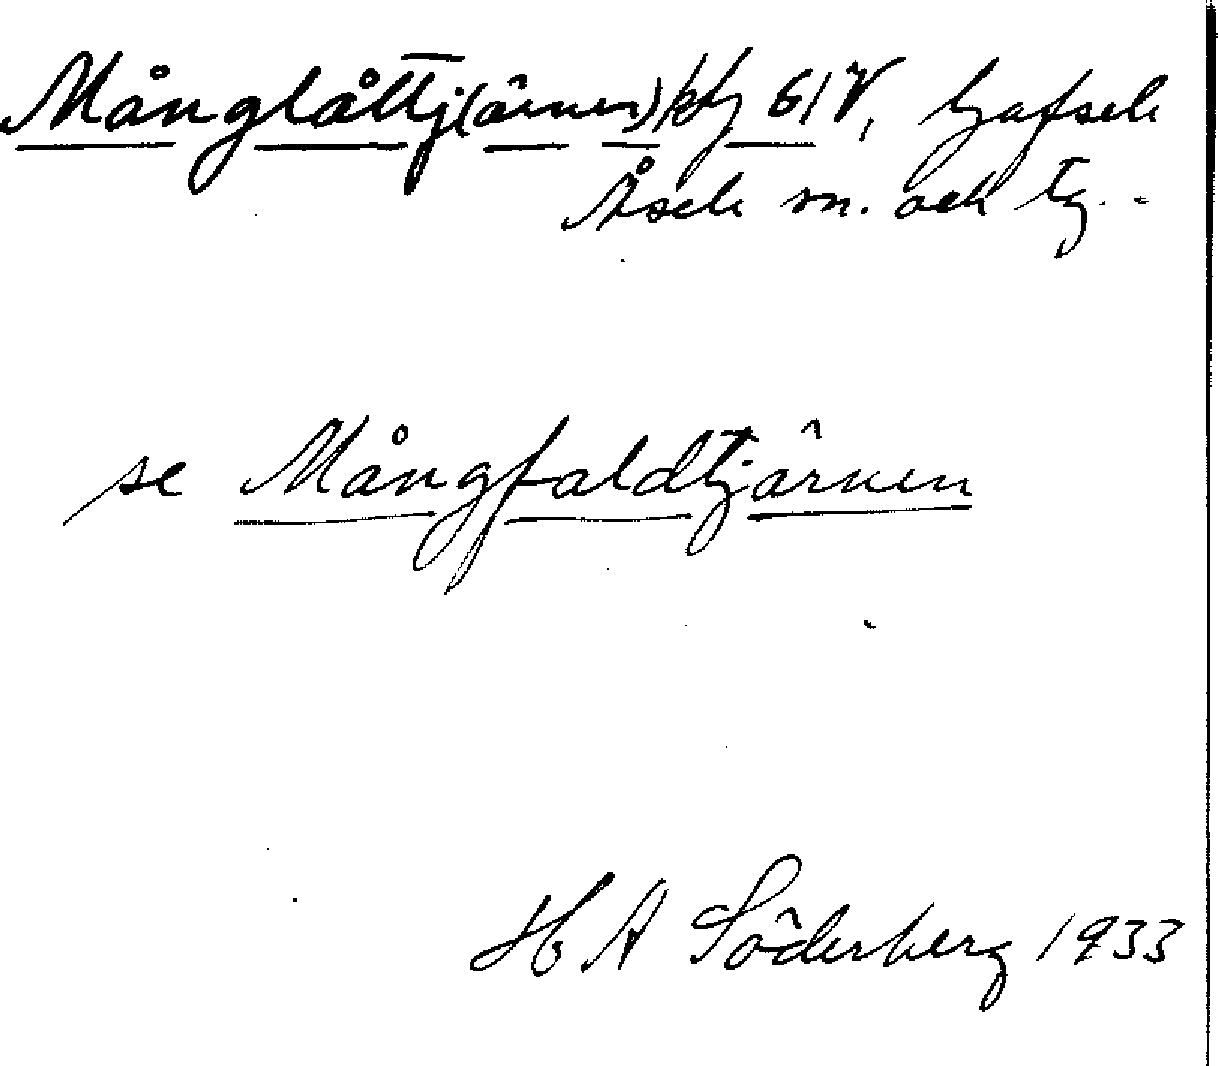 Månglåttj(ärnen) 61V, Gafsele
Åsele sn. och tg.
se Mångfaldtjärnen
H A Söderberg 1933